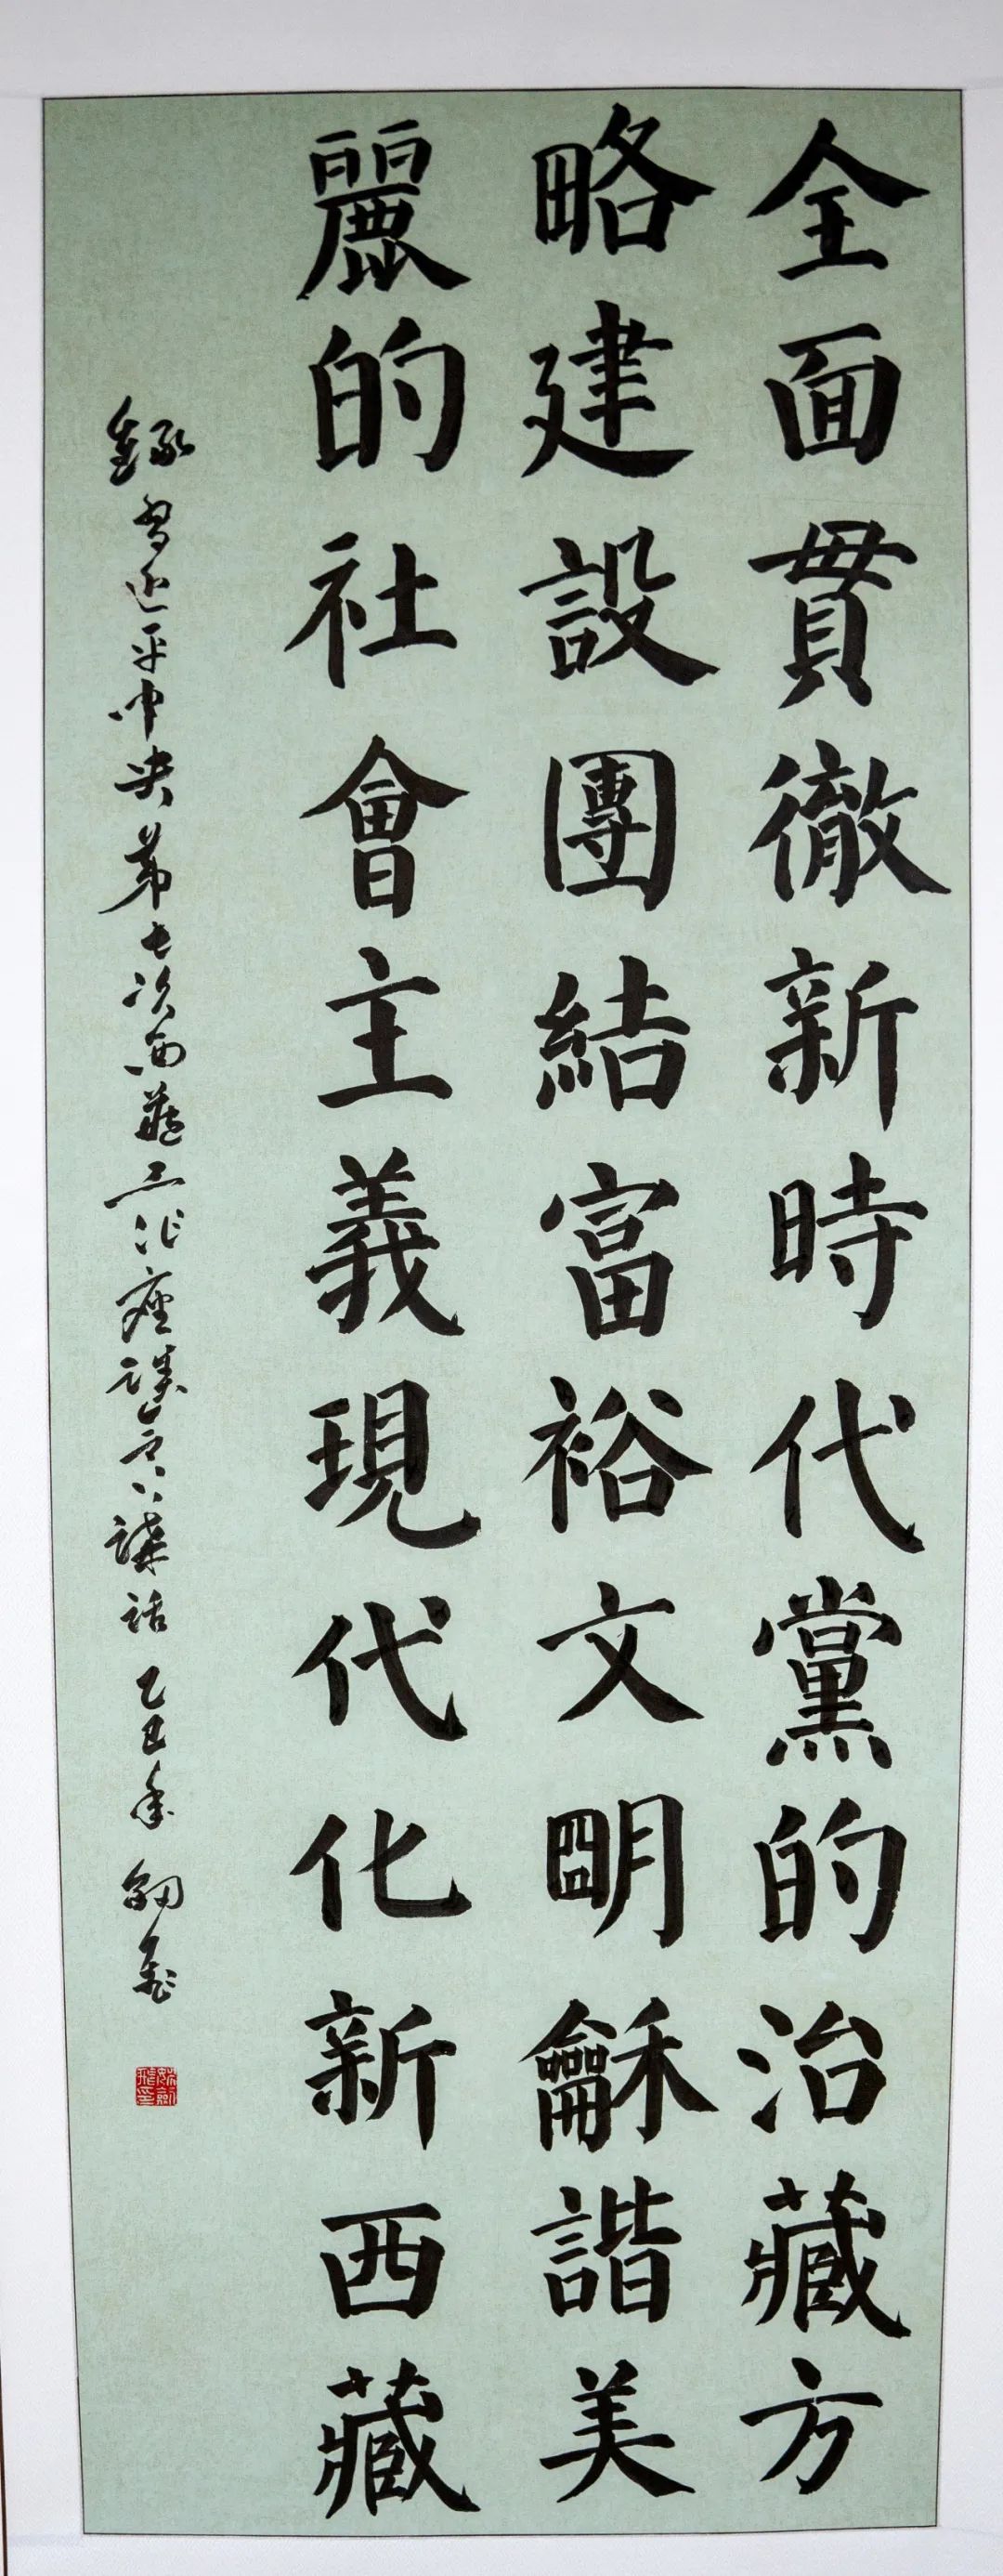 全面貫徹新時代黨的治藏方
略建設團結富裕文明龢諧美
麗的社會主義現代化新西藏
錄習近平中央第七次西藏工作座談會講話 乙巳年